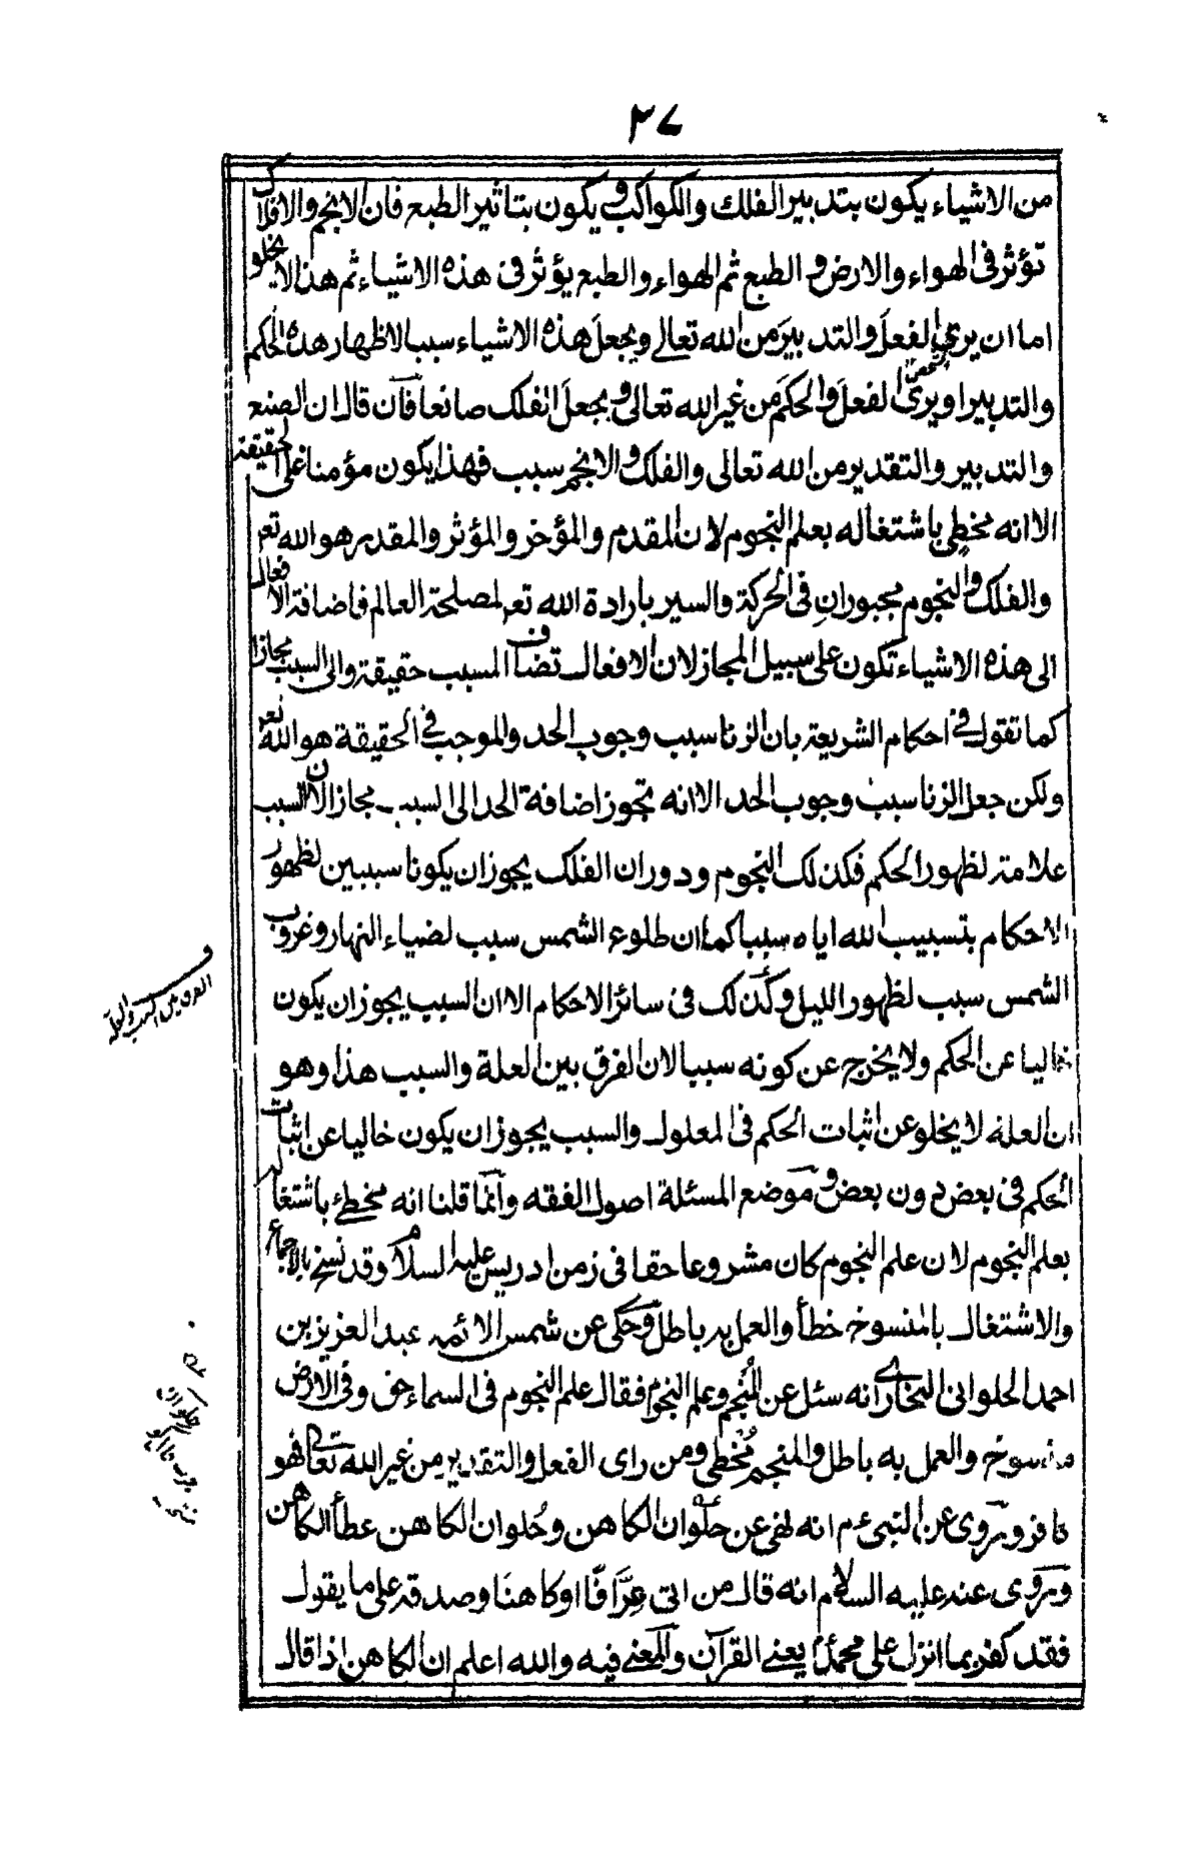 ٣٧
من الاشياء يكون بتدبير الفلك والكواكب ويكون بتاثير الطبع فان الانجم والافلاك
تؤثر فى الهواء والارض و الطبع ثم الهواء والطبع يؤثر فى هذه الاشياء ثم هذا لا يخلو
اما ان يرى الفعل والتدبير من الله تعالى ويجعل هذه الاشياء سببا لاظهار هذه الحكم
والتدبير او يرى الفعل والحكم من غير الله تعالى ويجعل الفلك صانعا فان قال ان الصنع
والتدبير والتقدير من الله تعالى والفلك والانجم سبب فهذا يكون مؤمنا على الحقيقة
الا انه مخطئ باشتغاله بعلم النجوم لان المقدم والمؤخر والمؤثر والمقدر هو الله تعـ
والفلك والنجوم مجبوران فى الحركة والسير بارادة الله تعـ لمصلحة العالم فاضافة الافعال
الى هذه الاشياء تكون على سبيل المجاز لان الافعال تضاف المسبب حقيقة والى السبب مجازا
كما تقول فى احكام الشريعة بان الزنا سبب وجوب الحد والموجب فى الحقيقة هو الله تعـ
ولكن جعل الزنا سبب وجوب الحد الا انه تجوز اضافة الحد الى السبب مجاز الان السبب
علامة لظهور الحكم فكذلك النجوم ودوران الفلك يجوز ان يكونا سببين لظهور
الاحكام بتسبيب الله اياه سببا كما ان طلوع الشمس سبب لضياء النهار وغروب
الشمس سبب لظهور الليل وكذلك فى سائر الاحكام الا ان السبب يجوز ان يكون
خاليا عن الحكم ولا يخرج عن كونه سببا لان الفرق بين العلة والسبب هذا وهو
ان العلة لا يخلو عن اثبات الحكم فى المعلول والسبب يجوز ان يكون خاليا عن اثبات
الحكم فى بعض دون بعض وموضع المسئلة اصول الفقه وانما قلنا انه مخطئ باشتغاله
بعلم النجوم لان علم النجوم كان مشروعا حقا فى زمن ادريس عليه السلام وقد نسخ بالاجماع
والاشتغال بالمنسوخ خطأ والعمل به باطل وحكى عن شمس الائمه عبد العزيز بن
احمد الحلوانى البخارى انه سئل عن المنجم وعلم النجوم فقال علم النجوم فى السماء حق وفى الارض
منسوخ والعمل به باطل والمنجم مخطى ومن راى الفعل والتقدير من غير الله تعالى فهو
كافر ويروى عن النبى ءم انه نهى عن حلوان الكاهن وحلوان الكاهن عطأ الكاهن
ويروى عنه عليه السلام انه قال من اتى عرّافًا او كاهنا وصدقه على ما يقول
فقد كفر بما انزل على محمد يعنى القرآن والمعنى فيه والله اعلم ان الكاهن اذا قال
الفرق بين السبب والعلة